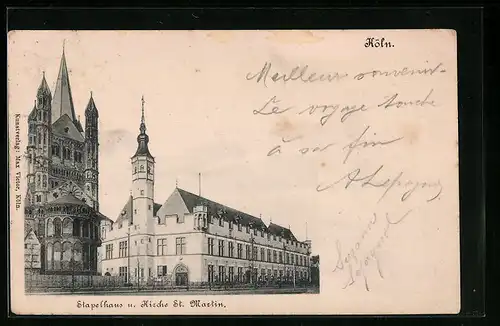 Köln.
Meilleur souvenir
Le voyage touche
à sa fin
Kunstverlag: Max Victor, Köln.
Stapelhaus u. Kirche St. Martin.